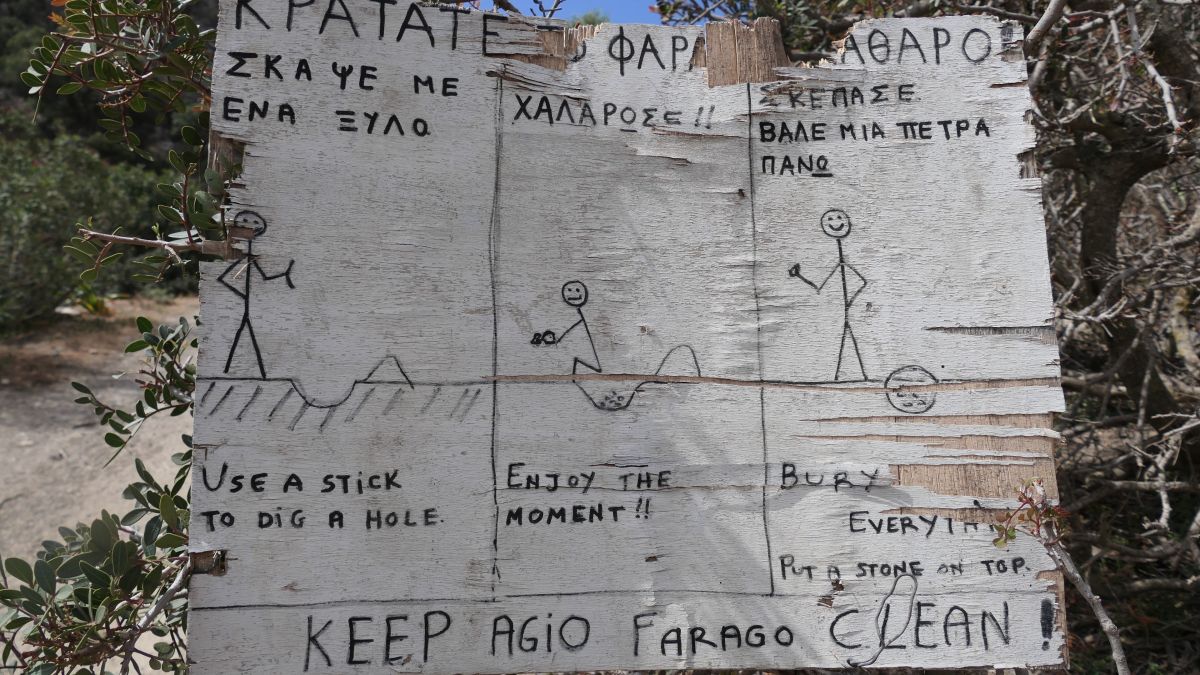 ΚΡΑΤΑΤΕ ΦΑΡΑ ΑΘΑΡΟ!
ΣΚΑΨΕ ΜΕ
ΕΝΑ ΞΥΛΟ
ΧΑΛΑΡΩΣΕ!!
ΣΚΕΠΑΣΕ.
ΒΑΛΕ ΜΙΑ ΠΕΤΡΑ
ΠΑΝΩ
USE A STICK
TO DIG A HOLE.
ENJOY THE
MOMENT!!
BURY
EVERYTH
PUT A STONE ON TOP.
KEEP AGIO FARAGO CLEAN!